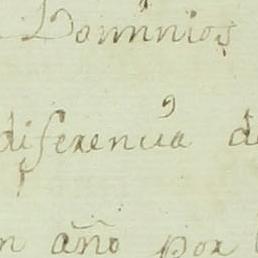 Dominios
diferencia de
n año por